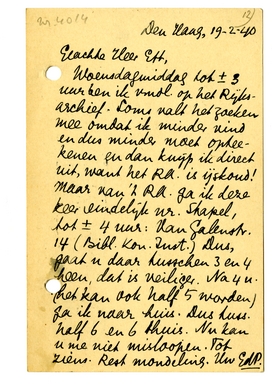 nr. 4014
12)
Den Haag, 19-2-40
Geachte Heer Ett,
Woensdagmiddag tot ± 3
uur ben ik vnol op het Rijks-
archief. Soms valt het zoeken
mee omdat ik minder vind
en dus minder moet opte-
kenen en dan knijp ik direct
uit, want het R.A. is ijskoud!
Maar van 't R.A. ga ik deze
keer eindelijk nr. Shapel,
tot ± 4 uur: Van Galenstr.
14 (Bibl. Kon. Inst.) Dus,
gaat u daar tusschen 3 en 4
heen, dat is veiliger. Na 4 u.
(het kan ook half 5 worden)
ga ik naar huis. Dus tuss.
half 6 en 6 thuis. Nu kan
u me niet mislopen. Tot
ziens. Rest mondeling. Uw EdP.